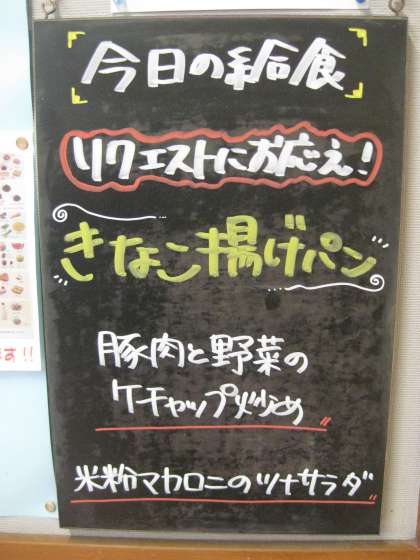 今日の給食
リクエストにお応え!
きなこ揚げパン
豚肉と野菜の
ケチャップ炒め
米粉マカロニのツナサラダ
ます!!